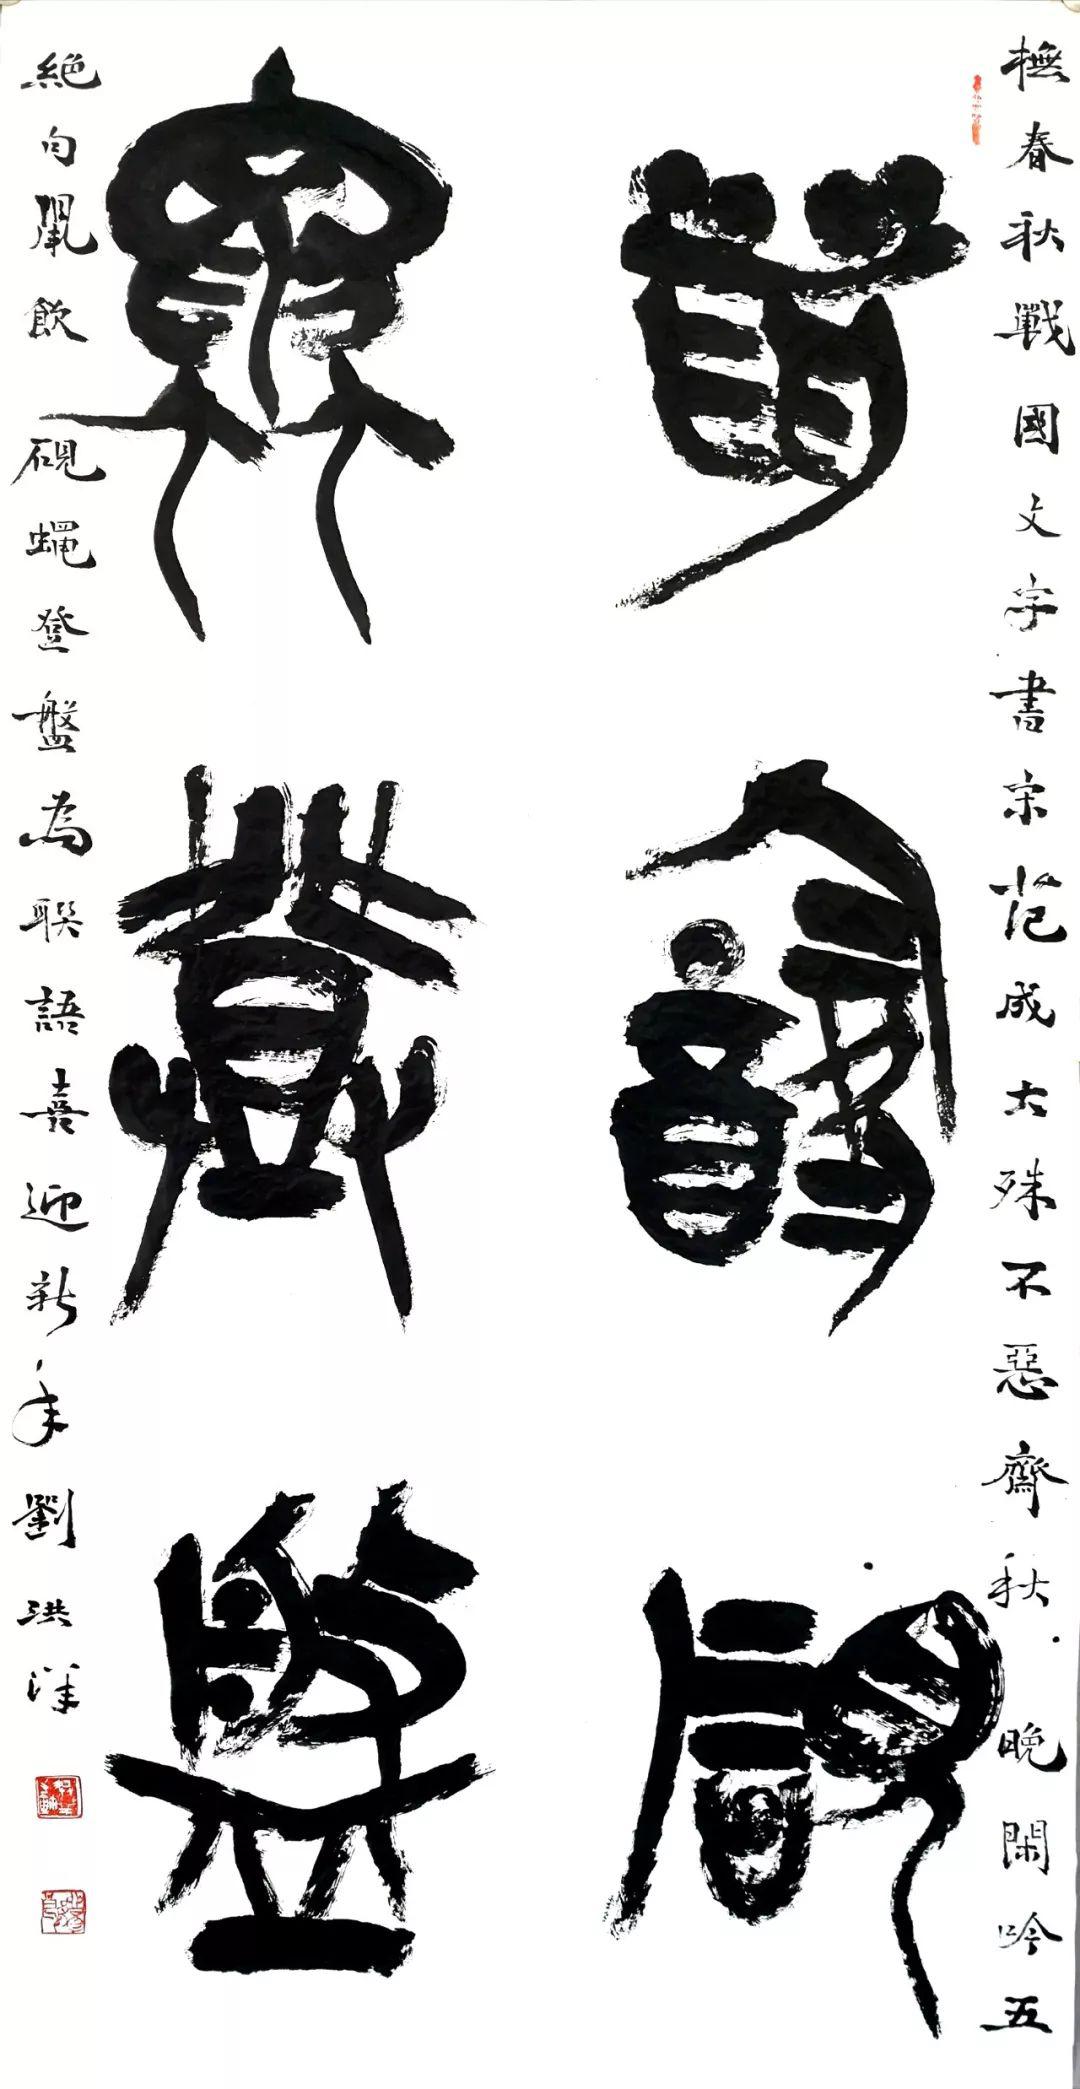 橅春秋戰國文字書宋范成大殊不惡齋秋晚閑吟五
鼠飲硯
蠅登盤
絕句鼠飲硯蠅登盤為聯語喜迎新年劉洪洋